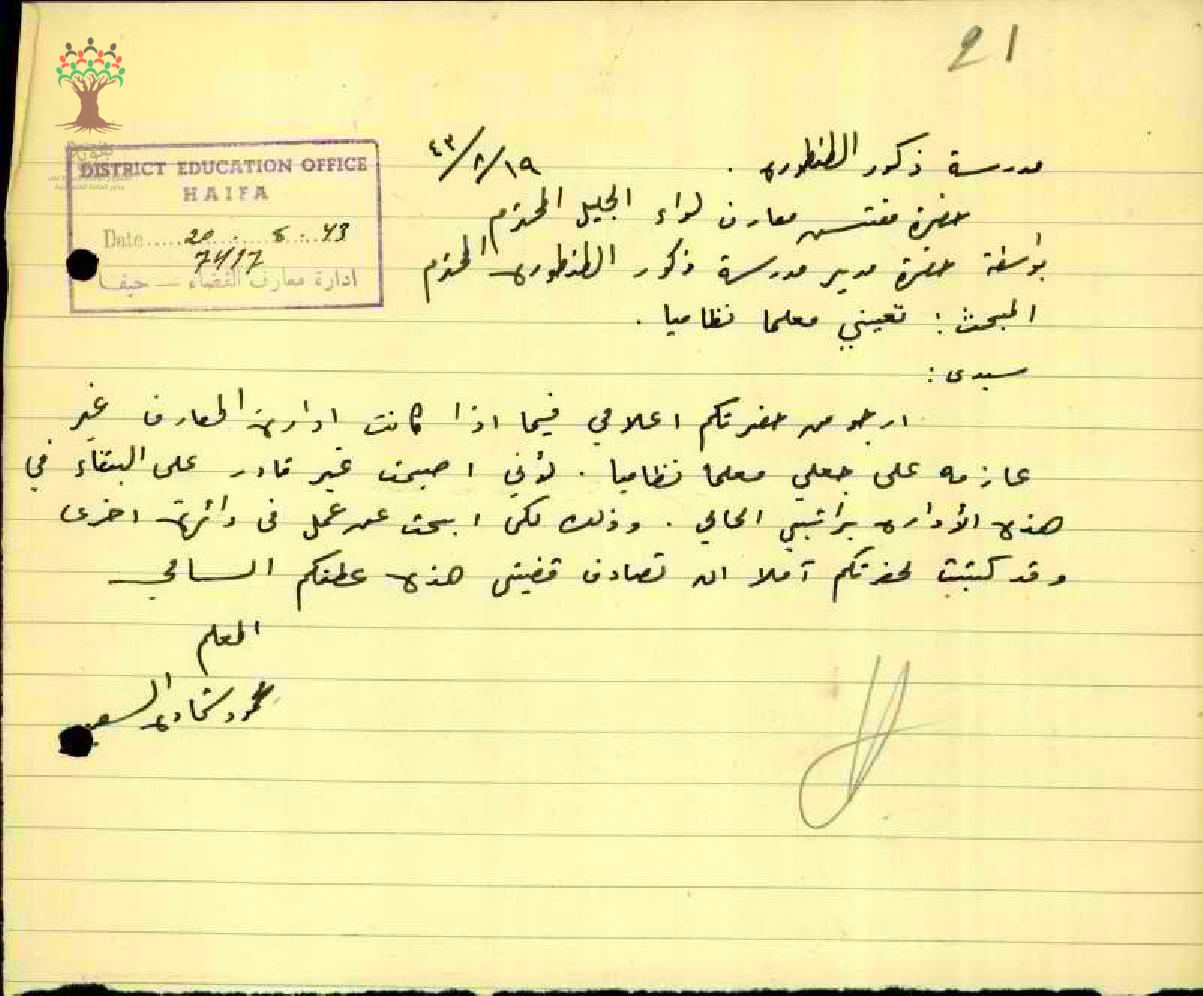 21
مدرسة ذكور الطنطورة . ١٩/٨/٤٣
حضرة مفتش معارف لواء الجليل المحترم
بواسطة حضرة مدير مدرسة ذكور الطنطورة المحترم
المبحث : تعييني معلما نظاميا .
سيدي :
ارجو من حضرتكم اعلامي فيما اذا كانت ادارة المعارف غير
عازمه على جعلي معلما نظاميا . لأني اصبحت غير قادر على البقاء في
هذه الأدارة براتبي الحالي . وذلك لكي ابحث عن عمل في دائرة اخرى
وقد كتبت لحضرتكم آملا ان تصادف قضيتي هذه عطفكم السامي
المعلم
السعيد
DISTRICT EDUCATION OFFICE
HAIFA
Date 20 . 8 . 43
74/7
ادارة معارف القضاء — حيفا